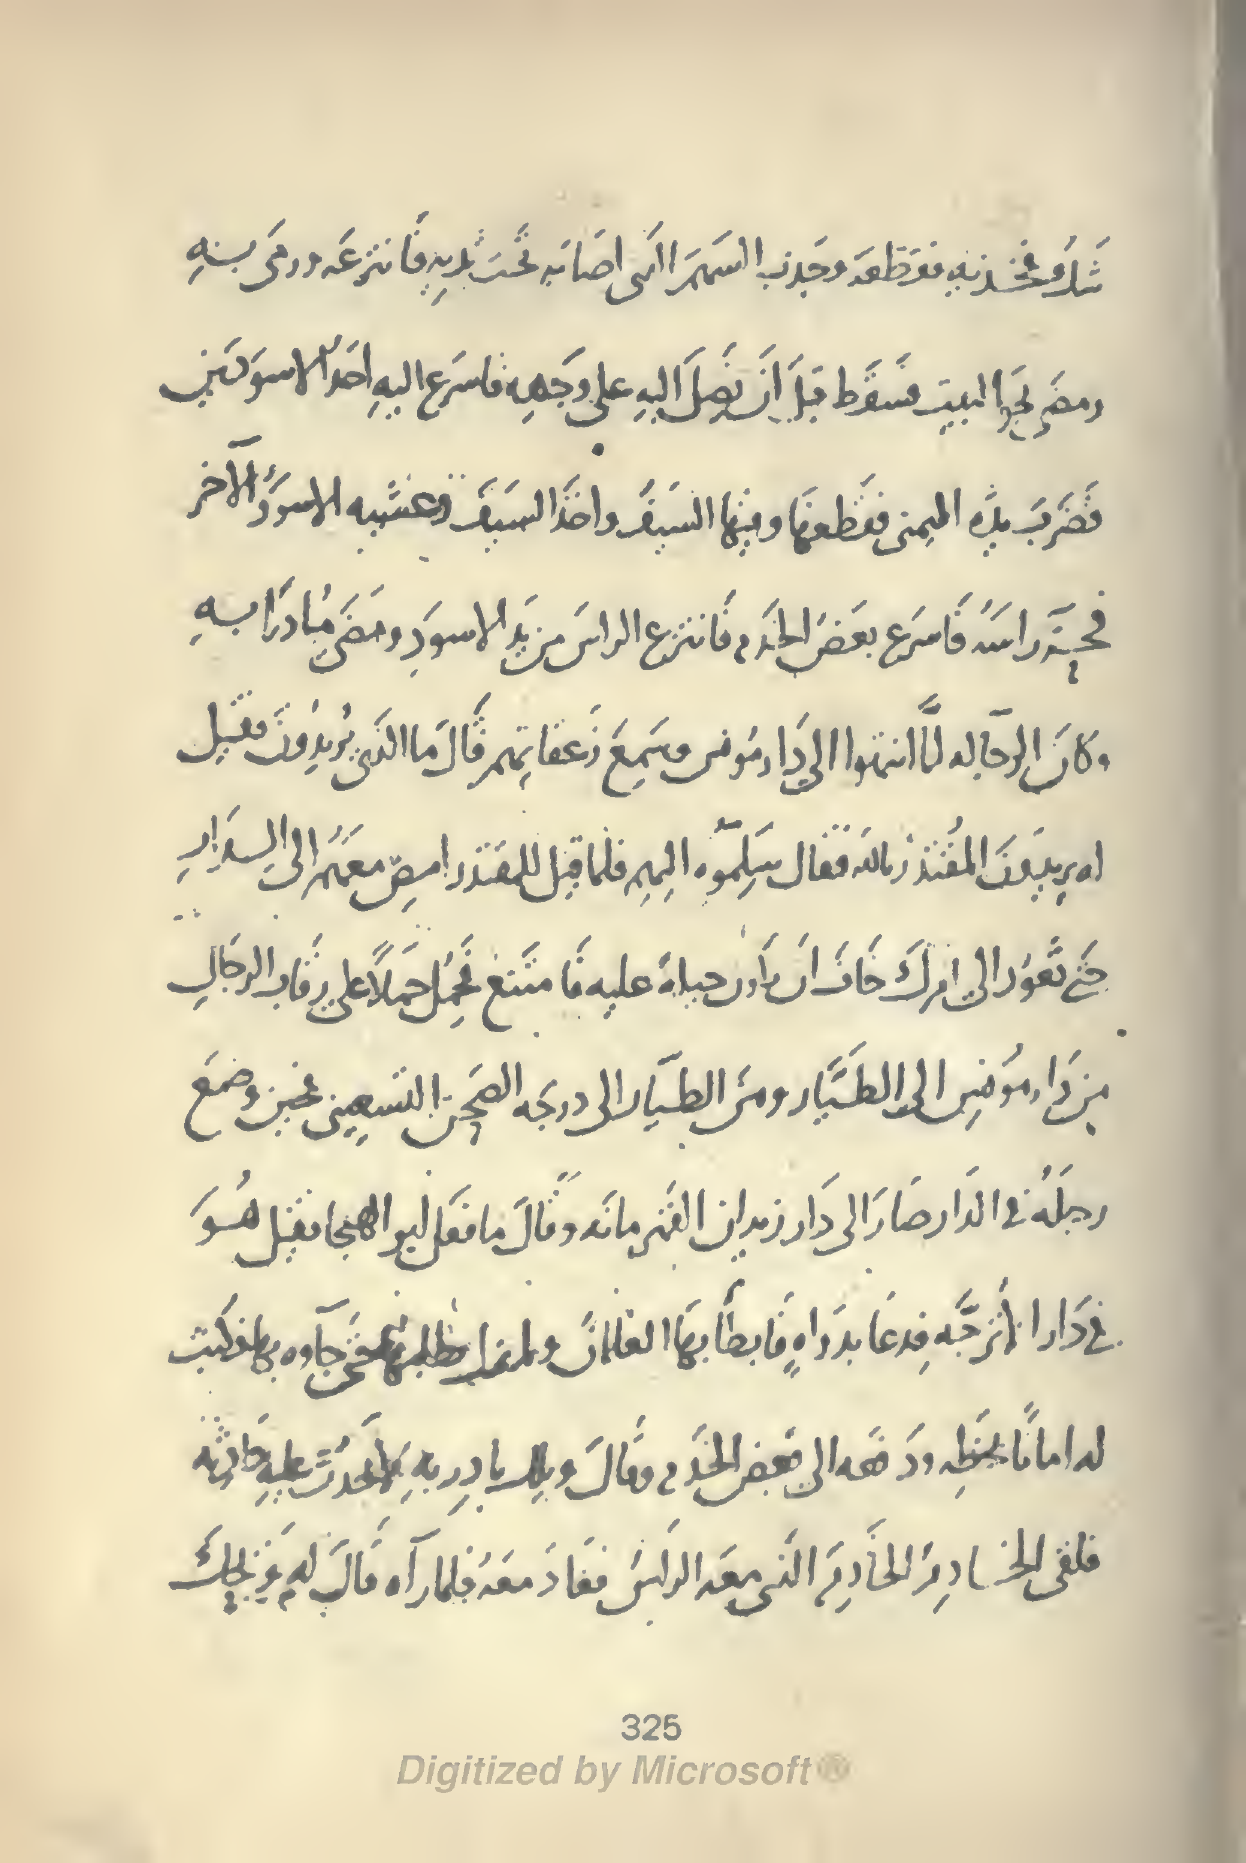 شك فخذيه فقطعه وجذب السهم الذى اصابه تحت ثديه فانتزعه ورمى به
ومضى نحو البيت فسقط قبل ان يصل اليه على وجهه فاسرع اليه احد الاسودين
فضرب يده اليمنى فقطعها وفيها السيف واخذ السيف وغشيه الاسود الآخر
فحز راسه فاسرع بعض الخدم فانتزع الراس من يد الاسود ومضى مبادرا به
وكان الرجاله لما انتهوا الى دار مونس وسمع زعقاتهم قال ما الذى يريدون فقيل
له يريدون المقتدر بالله فقال سلموه اليهم فلما قيل للمقتدر امض معهم الى الدار
حتى تعود الى امرك خاف ان تكون حيلة عليه فامتنع فحمل حملا على رقاب الرجال
من دار مونس الى الطيار ومن الطيار الى درجه الصحن التسعينى فحين وضع
رجله فى الدار صار الى دار زيدان القهرمانه وقال ما فعل ابو الهيجا فقيل هو
فى دار الأترجه فدعا بدواه فابطأ بها الغلمان ولم يزل يطلبها حتى جآوه بها فكتب
له امانا بخطه ودفعه الى بعض الخدم وقال ويلك بادر به لا يحدث عليه حادثه
فلقى الخادم الخادم الذى معه الراس فعاد معه فلما رآه قال له
325
Digitized by Microsoft®